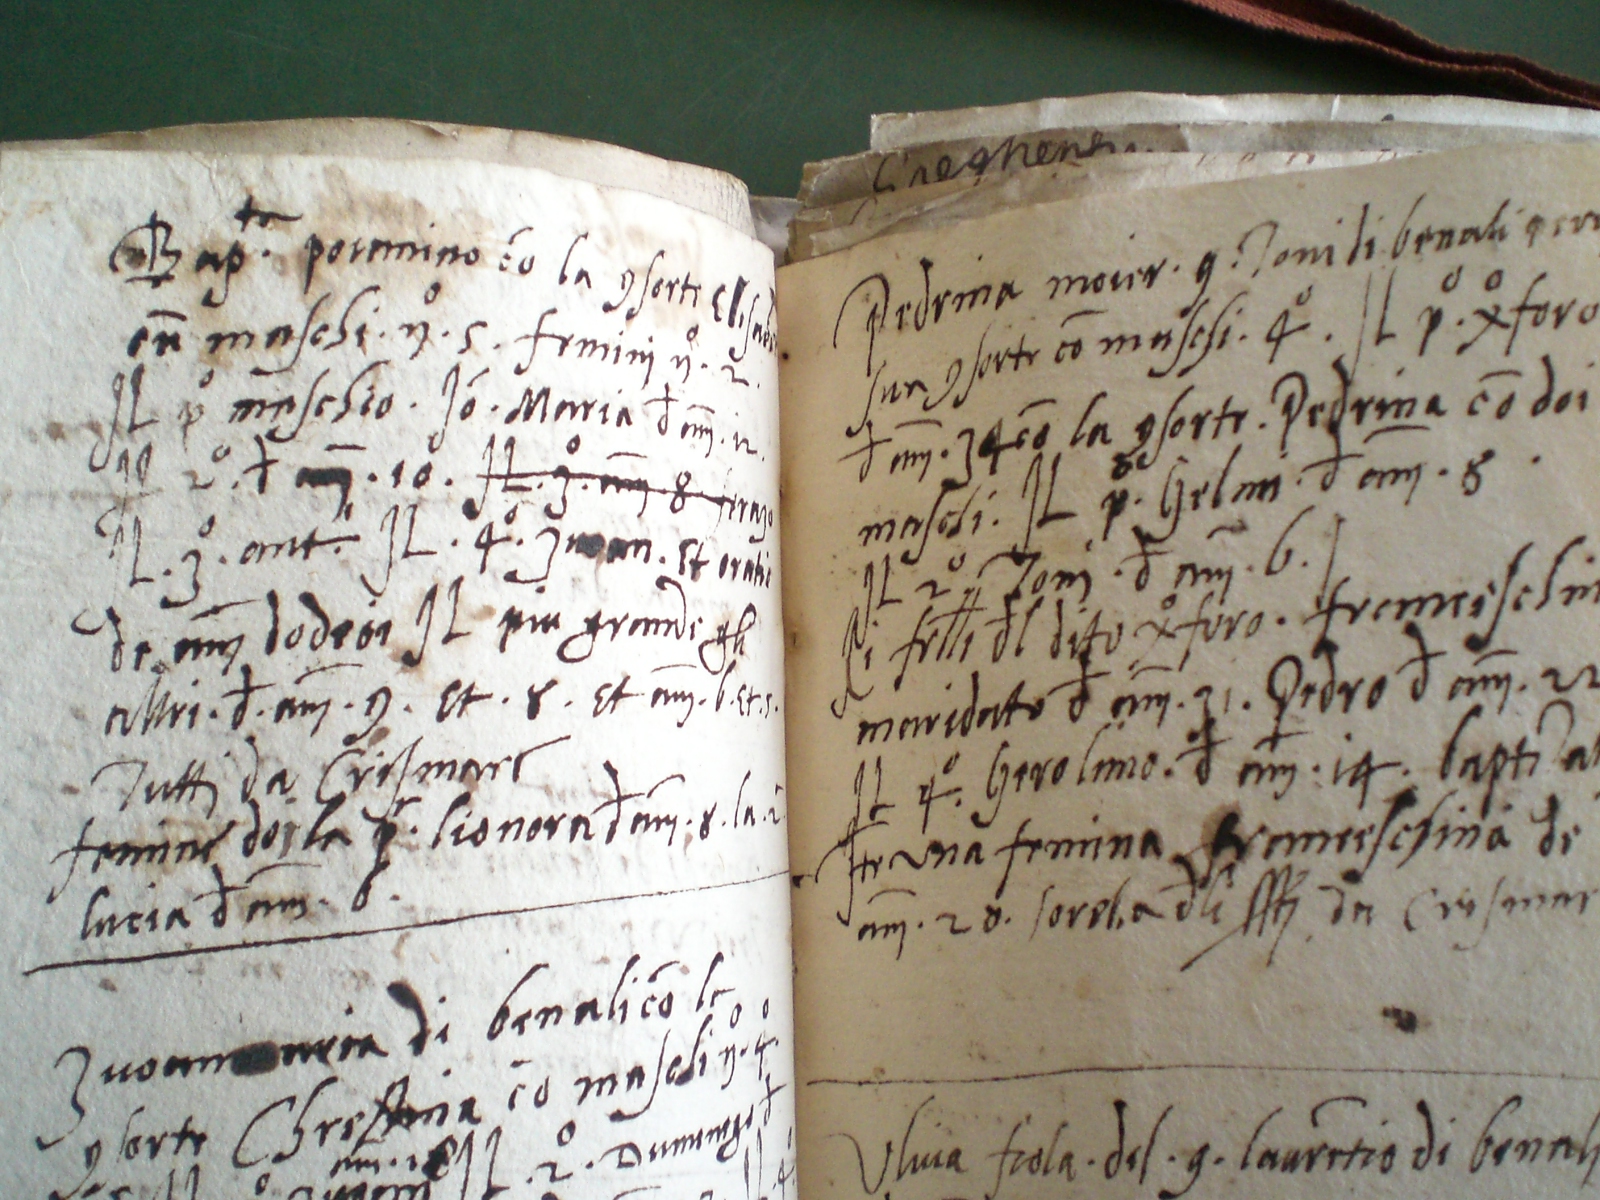 Bap.ta poremino cō la 9sorte Elisabe
cū maschi. nº. 5. femini nº. 2.
Il pº maschio. Jō. Maria d ani. 12.
Il 2º. d ani. 10. Il. 3º. ani 8
Il. 3º. ant.º Il. 4º. Zuan. Et oratio
de ani dodesi Il piu grande gli
altri. d. ani. 9. Et. 8. Et ani. 6. Et. 5.
Tutti da Cresmare
femine doi la pª. lionora d ani. 8. la 2ª
lucia d ani. 6.
Zuoanmaria di benali cō la
9sorte Chrestina cō maschi nº. 4º
ani. 18 Il. 2º. Dumenego d
Gaghen
Pedrina moier. q. Toni di benali
sua 9sorte cō maschi. 4º. Il pº. xº foro
d ani. 34 cō la 9sorte. Pedrina cō doi
maschi. Il pº. Gelmi. d ani. 8.
Il 2º Toni. d ani. 6.
Li frlli dl dito xº foro. franceschin
maridato d ani. 31. Pedro d ani. 22
Il 4º. Gerolimo. d ani. 14. bapti
Et una femina franceschina de
ani. 20. sorela dli ssti da Cresmar
Ulivia fiola. del. q. laurētio di benali